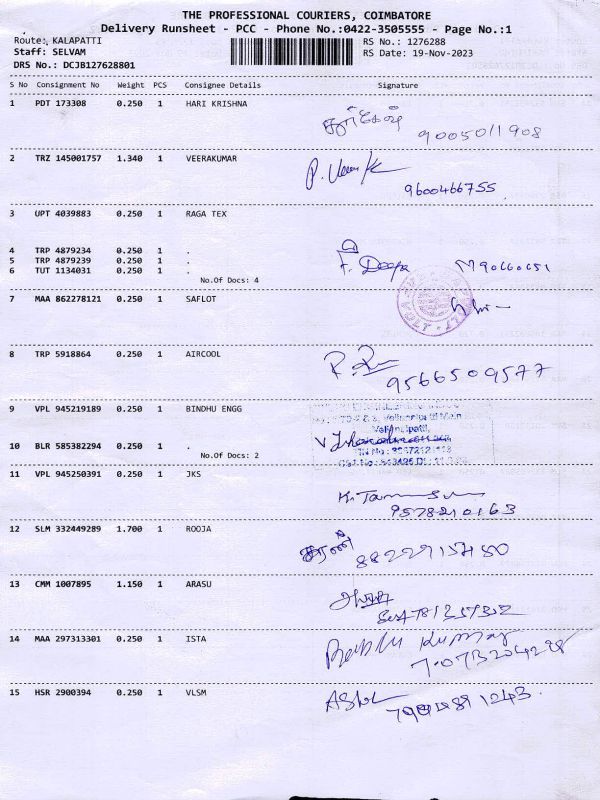 THE PROFESSIONAL COURIERS, COIMBATORE
Delivery Runsheet - PCC - Phone No.:0422-3505555 - Page No.:1
Route: KALAPATTI
RS No.: 1276288
Staff: SELVAM
RS Date: 19-Nov-2023
DRS No.: DCJB127628801
S No Consignment No Weight PCS Consignee Details Signature
1 PDT 173308 0.250 1 HARI KRISHNA
9005011908
2 TRZ 145001757 1.340 1 VEERAKUMAR
9600466755
3 UPT 4039883 0.250 1 RAGA TEX
4 TRP 4879234 0.250 1 .
5 TRP 4879239 0.250 1 .
6 TUT 1134031 0.250 1 .
F. Deepa
No.Of Docs: 4
7 MAA 862278121 0.250 1 SAFLOT
8 TRP 5918864 0.250 1 AIRCOOL
9566509577
9 VPL 945219189 0.250 1 BINDHU ENGG
10 BLR 585382294 0.250 1 .
No.Of Docs: 2
11 VPL 945250391 0.250 1 JKS
9578210163
12 SLM 332449289 1.700 1 ROOJA
13 CMM 1007895 1.150 1 ARASU
14 MAA 297313301 0.250 1 ISTA
15 HSR 2900394 0.250 1 VLSM